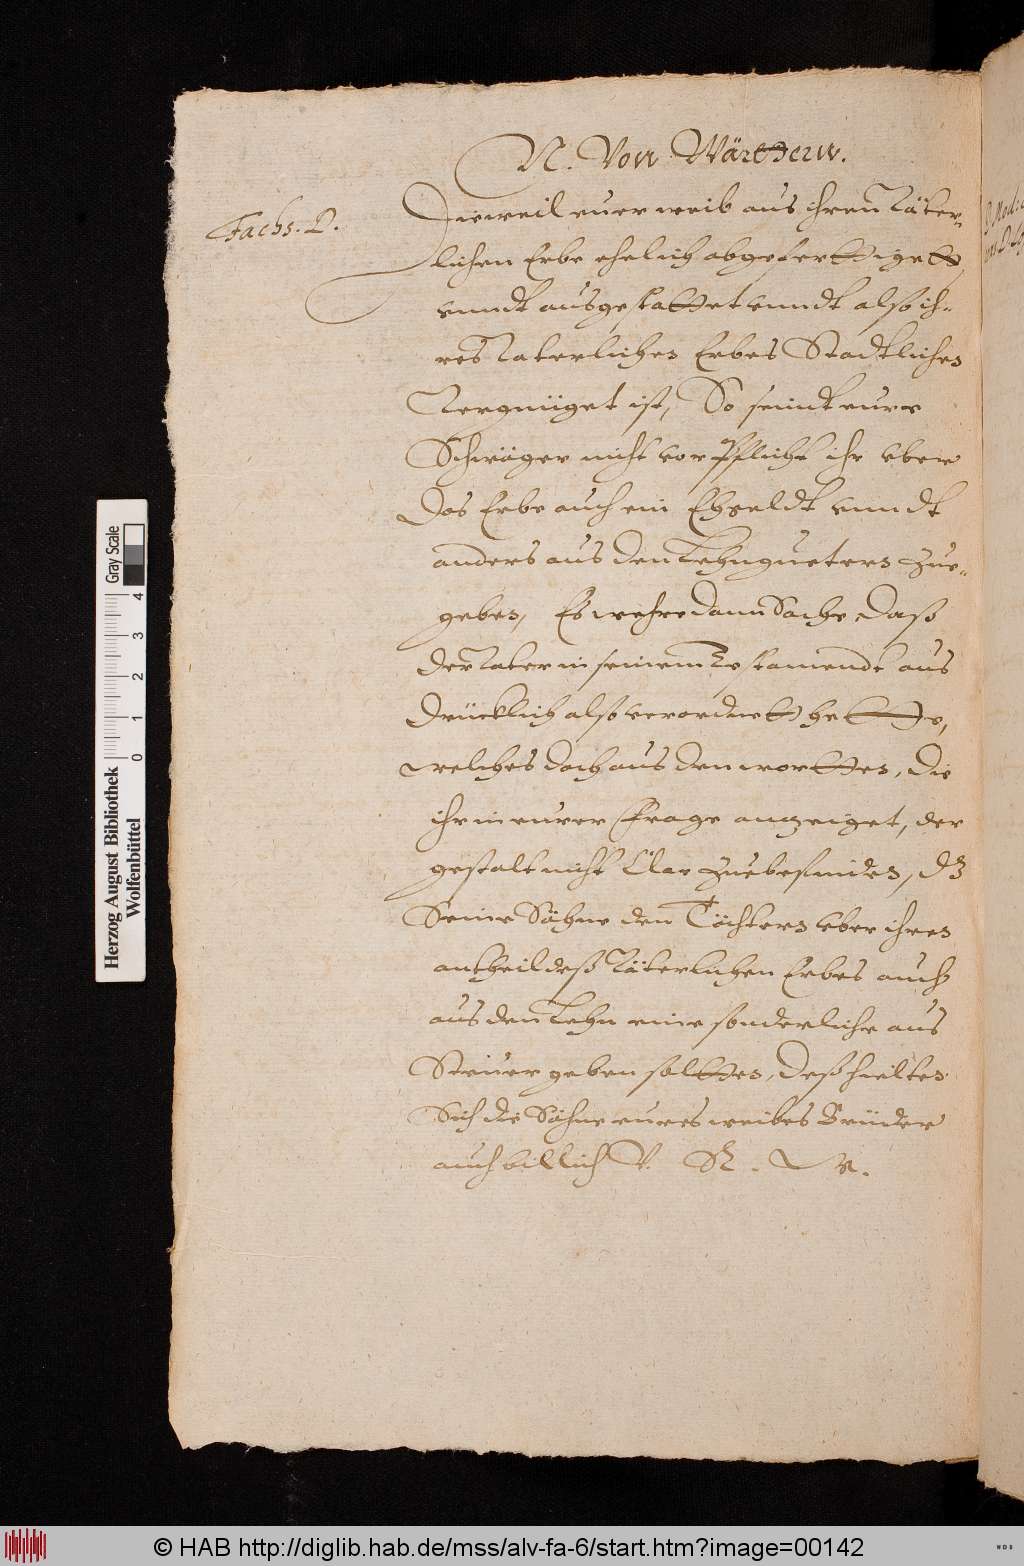 N. Von Wärthern.
Fachs. D.
Dieweil euer weib aus ihren Väter-
lichen Erbe ehelich abgeferttiget
vnndt ausgestattet vnndt also ih-
res Vaterlichen Erbes Stadtlichen
Vergnüget ist, So seindt eure
Schwäger nicht vorpflicht ihr vber
das Erbe auch ein Ehgeldt vnndt
anders aus den Lehngueter zue-
geben, Es wehre dann Sache daß
der Vater in seinem Testamendt aus
drücklich also verordnett hette,
welches doch aus den wortten, die
ihr in eurer Frage anzeiget, der
gestalt nicht Clar zuebefinden, dz
Seine Söhne den Töchtern vber ihren
antheil deß Väterlichen Erbes auch
aus den Lehn eine sonderliche aus
Steuer geben soltten, deß hielten
Sich die Söhne eures weibes Brüder
auch billich V. R. W.
Herzog August Bibliothek
Wolfenbüttel
0 1 2 3 4
Gray Scale
© HAB http://diglib.hab.de/mss/alv-fa-6/start.htm?image=00142
WDB